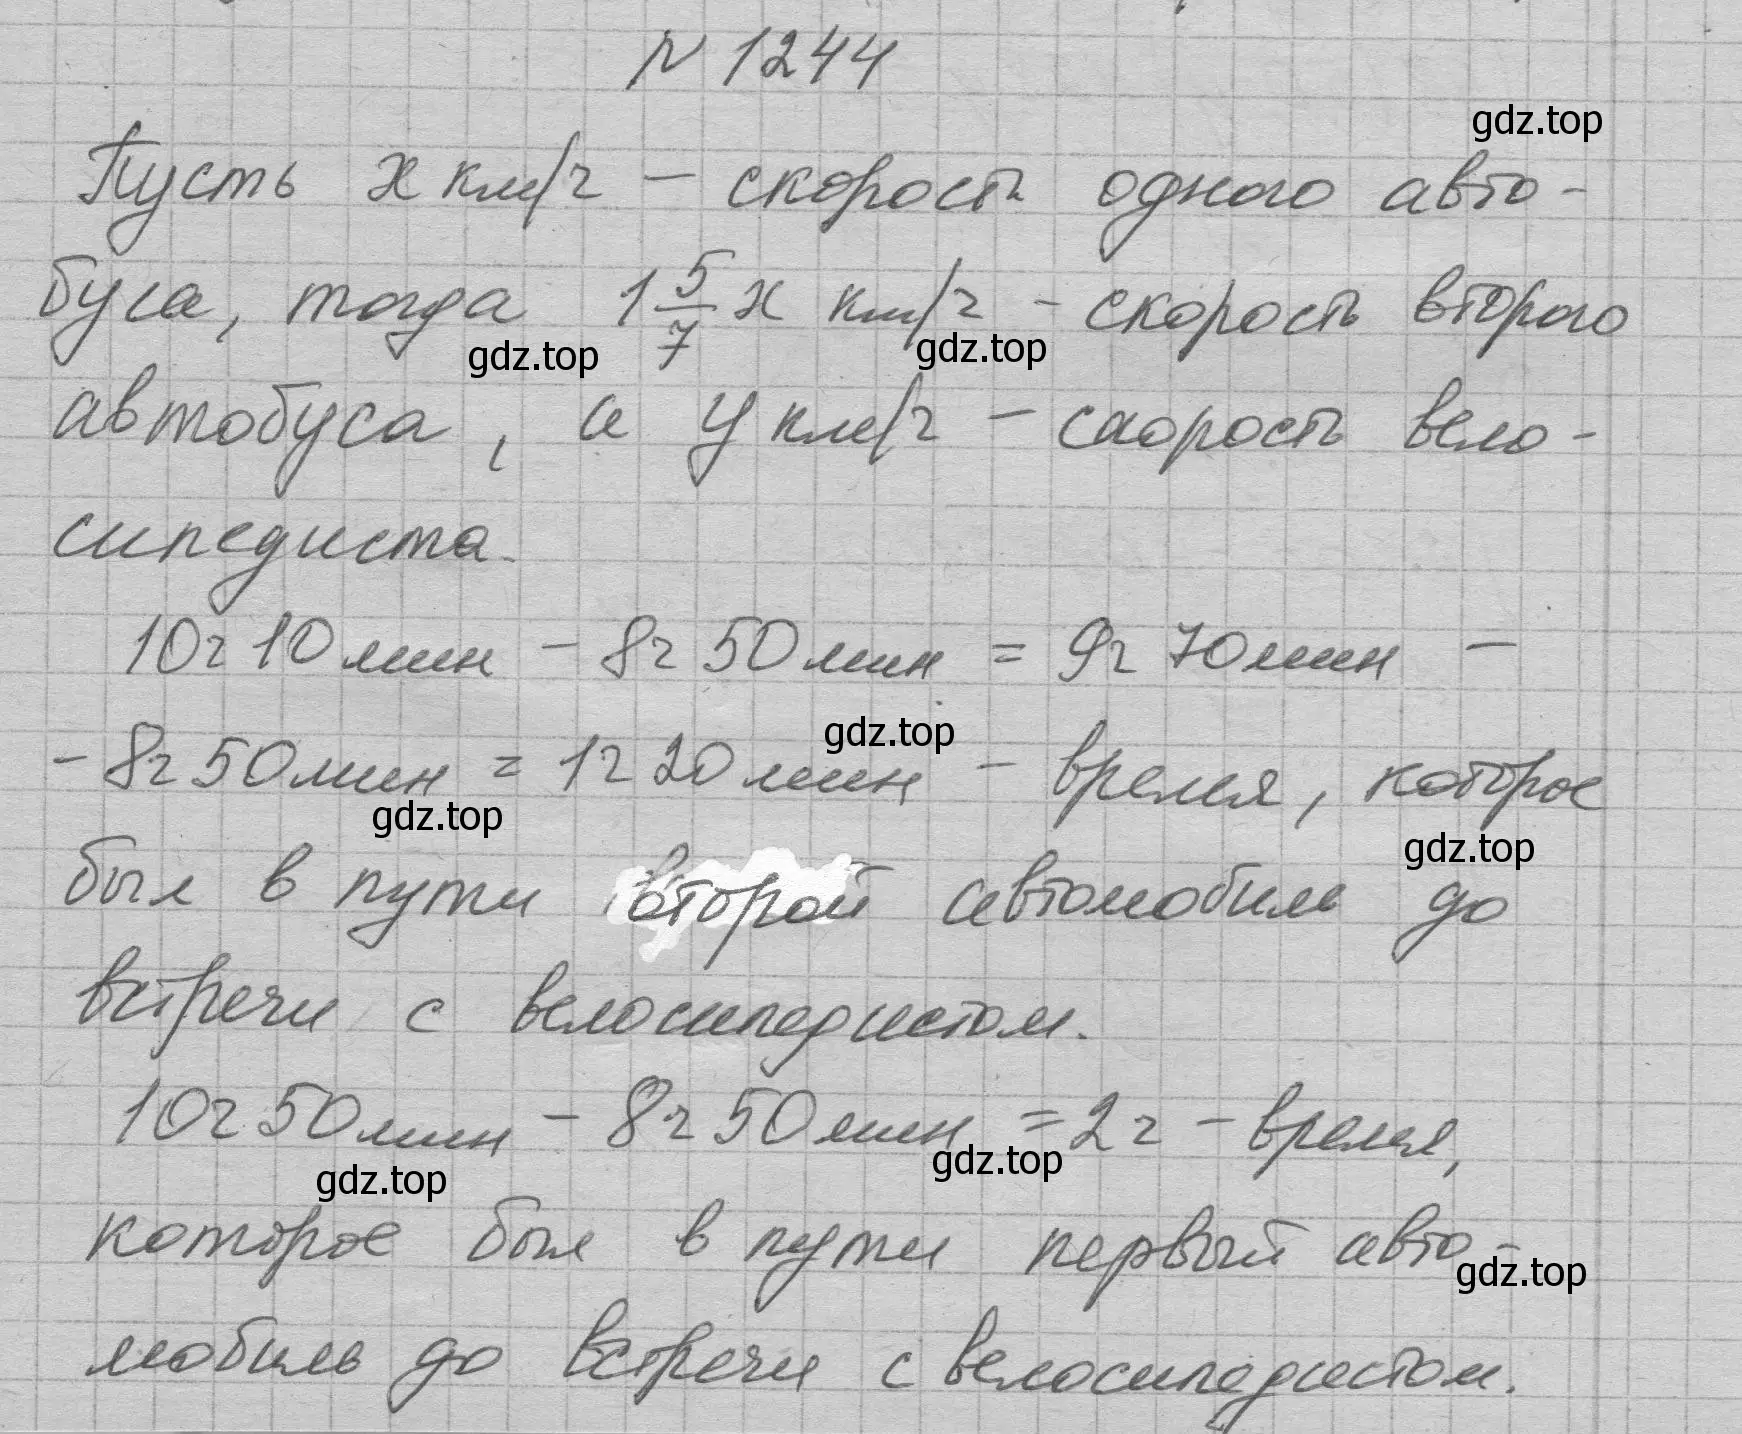 № 1244
gdz.top
Пусть x км/ч – скорость одного авто-
буса, тогда 1 5/7 x км/ч – скорость второго
gdz.top gdz.top
автобуса, а y км/ч – скорость вело-
сипедиста.
10ч 10мин – 8ч 50мин = 9ч 70мин –
gdz.top
– 8ч 50мин = 1ч 20мин – время, которое
gdz.top gdz.top
был в пути второй автомобиль до
встречи с велосипедистом.
10ч 50мин – 8ч 50мин = 2ч – время,
gdz.top gdz.top
которое был в пути первый авто-
gdz.top
мобиль до встречи с велосипедистом.